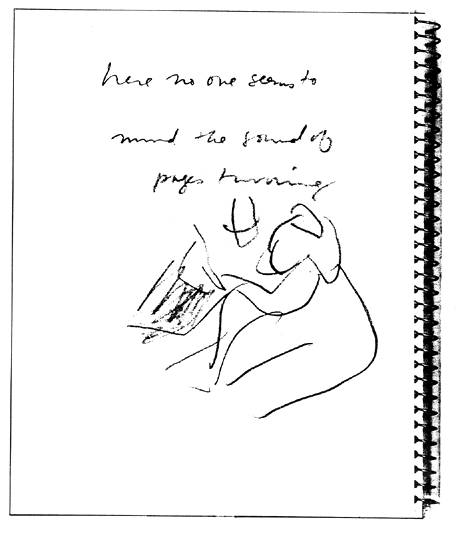 here no one seems to
mind the sound of
pages turning